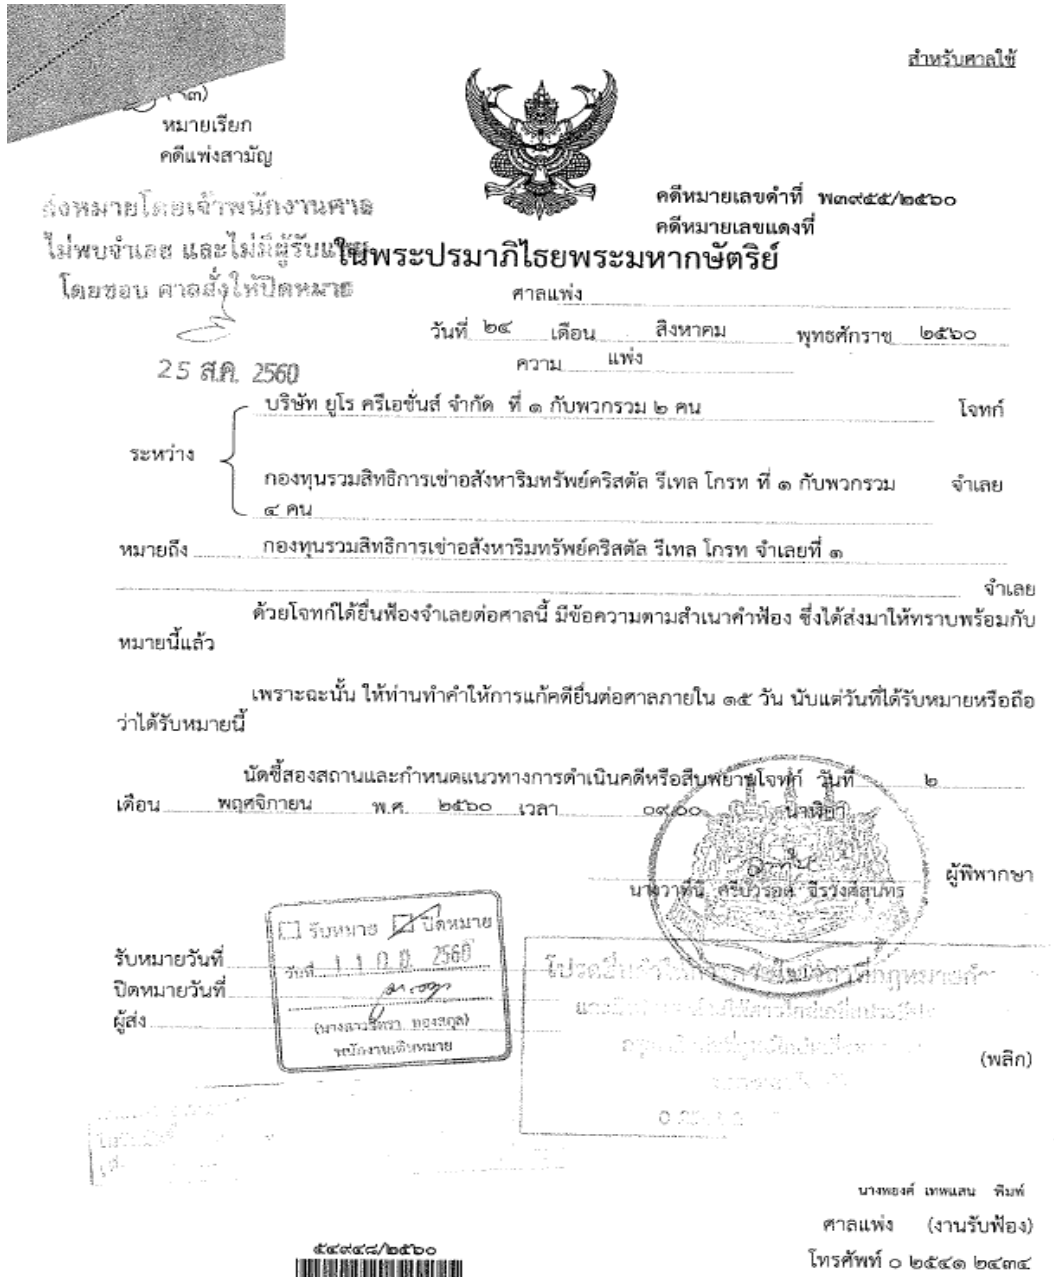 สำหรับศาลใช้
หมายเรียก
คดีแพ่งสามัญ
ส่งหมายโดยเจ้าพนักงานศาล
ไม่พบจำเลย และไม่มีผู้รับแทน
โดยชอบ ศาลสั่งให้ปิดหมาย
25 ส.ค. 2560
คดีหมายเลขดำที่ พ๓๙๕๕/๒๕๖๐
คดีหมายเลขแดงที่
ในพระปรมาภิไธยพระมหากษัตริย์
ศาลแพ่ง
วันที่ ๒๔ เดือน สิงหาคม พุทธศักราช ๒๕๖๐
ความ แพ่ง
บริษัท ยูโร ครีเอชั่นส์ จำกัด ที่ ๑ กับพวกรวม ๒ คน โจทก์
ระหว่าง
กองทุนรวมสิทธิการเช่าอสังหาริมทรัพย์คริสตัล รีเทล โกรท ที่ ๑ กับพวกรวม จำเลย
๔ คน
หมายถึง กองทุนรวมสิทธิการเช่าอสังหาริมทรัพย์คริสตัล รีเทล โกรท จำเลยที่ ๑
จำเลย
ด้วยโจทก์ได้ยื่นฟ้องจำเลยต่อศาลนี้ มีข้อความตามสำเนาคำฟ้อง ซึ่งได้ส่งมาให้ทราบพร้อมกับ
หมายนี้แล้ว
เพราะฉะนั้น ให้ท่านทำคำให้การแก้คดียื่นต่อศาลภายใน ๑๕ วัน นับแต่วันที่ได้รับหมายหรือถือ
ว่าได้รับหมายนี้
นัดชี้สองสถานและกำหนดแนวทางการดำเนินคดีหรือสืบพยานโจทก์ วันที่ ๒
เดือน พฤศจิกายน พ.ศ. ๒๕๖๐ เวลา ๐๙.๐๐ นาฬิกา
ผู้พิพากษา
รับหมาย ปิดหมาย
รับหมายวันที่
วันที่ 11 ก.ย. 2560
ปิดหมายวันที่
ผู้ส่ง
พนักงานเดินหมาย
(พลิก)
นางพยงค์ เทพแสน พิมพ์
ศาลแพ่ง (งานรับฟ้อง)
โทรศัพท์ ๐ ๒๕๔๑ ๒๔๓๔
๕๔๙๔๘/๒๕๖๐